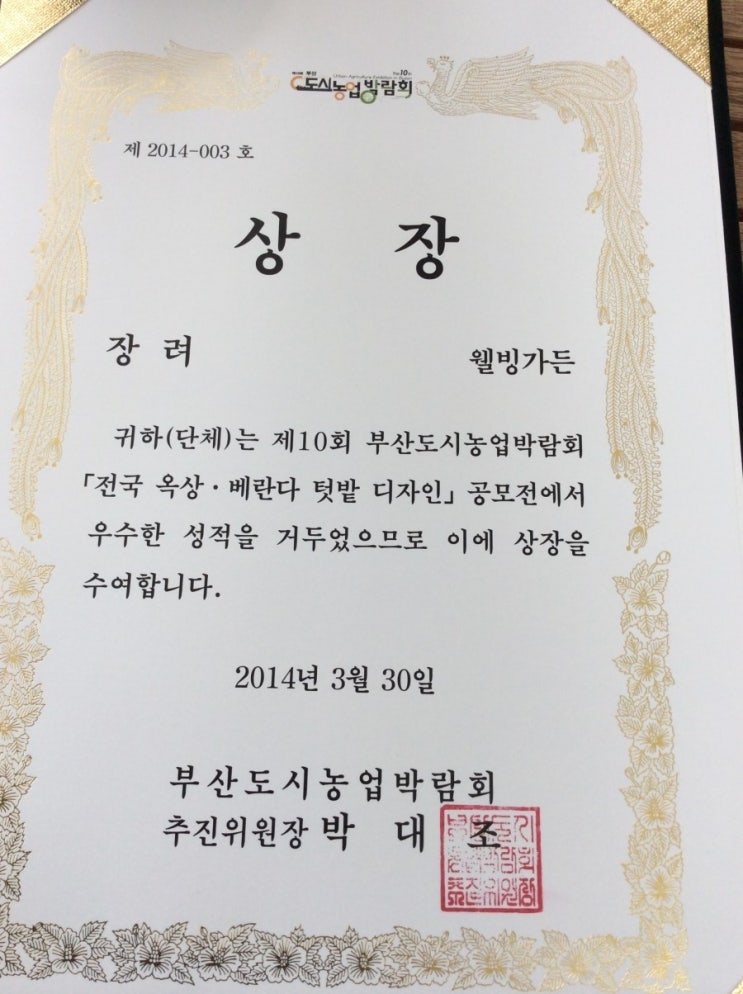 부산
The 10th
도시농업박람회
제 2014-003 호
상 장
장 려
웰빙가든
귀하(단체)는 제10회 부산도시농업박람회
「전국 옥상·베란다 텃밭 디자인」 공모전에서
우수한 성적을 거두었으므로 이에 상장을
수여합니다.
2014년 3월 30일
부산도시농업박람회
추진위원장 박 대 조